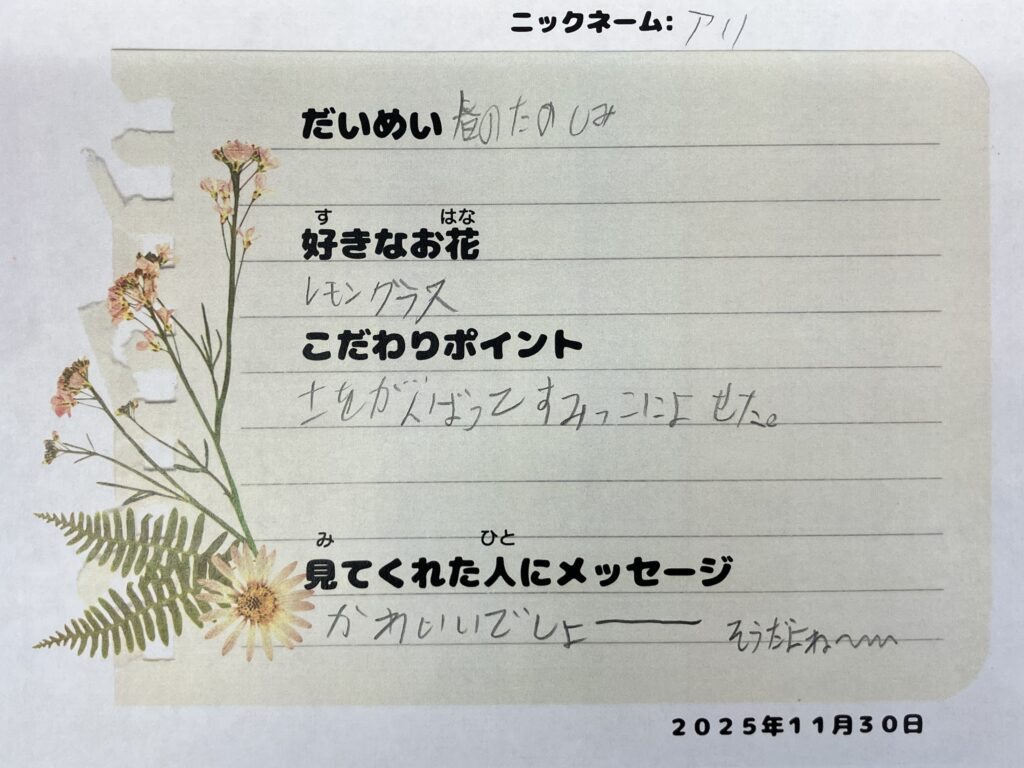 ニックネーム: アリ
だいめい 昼のたのしみ
す はな
好きなお花
レモングラス
こだわりポイント
土をがんばってすみっこによせた。
み ひと
見てくれた人にメッセージ
かわいいでしょー そうだよね〜
2025年11月30日